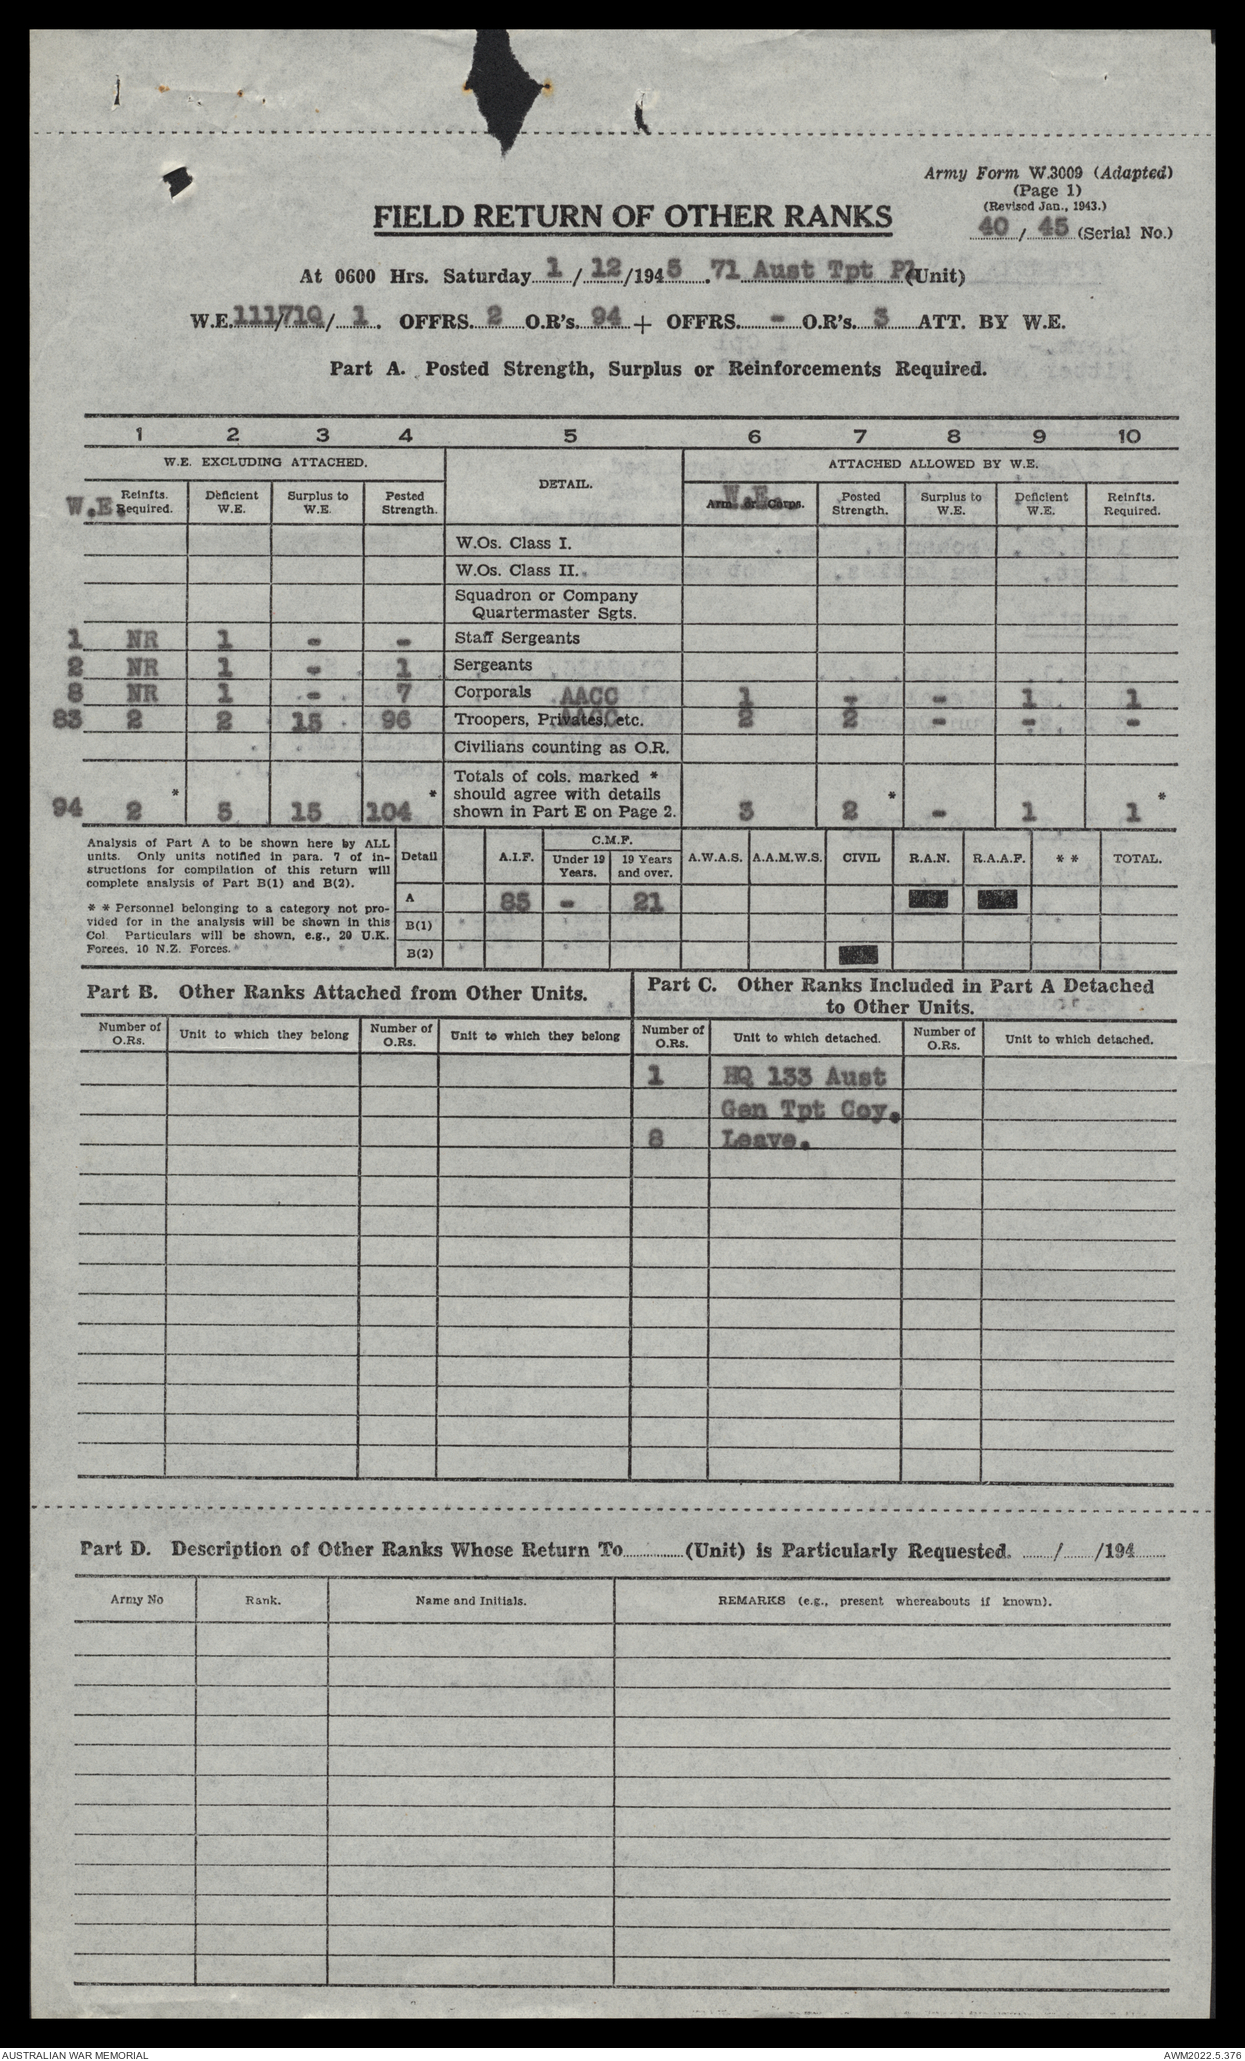 Army Form W.3009 (Adapted)
(Page 1)
(Revised Jan., 1943.)
40 / 45 (Serial No.)
FIELD RETURN OF OTHER RANKS
At 0600 Hrs. Saturday 1 / 12 /1945 .71 Aust Tpt Pl (Unit)
W.E. 111/71Q/ 1 . OFFRS. 2 O.R's. 94 + OFFRS. - O.R's. 3 ATT. BY W.E.
Part A. Posted Strength, Surplus or Reinforcements Required.
1 2 3 4 5 6 7 8 9 10
W.E. EXCLUDING ATTACHED. DETAIL. ATTACHED ALLOWED BY W.E.
W.E. Reinfts. Required. Deficient W.E. Surplus to W.E. Posted Strength. W.E. Arm or Corps. Posted Strength. Surplus to W.E. Deficient W.E. Reinfts. Required.
W.Os. Class I.
W.Os. Class II.
Squadron or Company
Quartermaster Sgts.
1 NR 1 - - Staff Sergeants
2 NR 1 - 1 Sergeants
8 NR 1 - 7 Corporals AACC 1 - - 1 1
83 2 2 15 96 Troopers, Privates, etc. AACC 2 2 - - -
Civilians counting as O.R.
Totals of cols. marked *
should agree with details
94 2 * 5 15 104 * shown in Part E on Page 2. 3 2 * - 1 1 *
Analysis of Part A to be shown here by ALL
units. Only units notified in para. 7 of in-
structions for compilation of this return will
complete analysis of Part B(1) and B(2).
* * Personnel belonging to a category not pro-
vided for in the analysis will be shown in this
Col. Particulars will be shown, e.g., 20 U.K.
Forces, 10 N.Z. Forces.
Detail A.I.F. C.M.F. Under 19 Years. 19 Years and over. A.W.A.S. A.A.M.W.S. CIVIL R.A.N. R.A.A.F. * * TOTAL.
A 85 - 21
B(1)
B(2)
Part B. Other Ranks Attached from Other Units.
Part C. Other Ranks Included in Part A Detached
to Other Units.
Number of O.Rs. Unit to which they belong Number of O.Rs. Unit to which they belong Number of O.Rs. Unit to which detached. Number of O.Rs. Unit to which detached.
1 HQ 133 Aust
Gen Tpt Coy.
8 Leave.
Part D. Description of Other Ranks Whose Return To (Unit) is Particularly Requested. / /194
Army No Rank. Name and Initials. REMARKS (e.g., present whereabouts if known).
AUSTRALIAN WAR MEMORIAL AWM2022.5.376